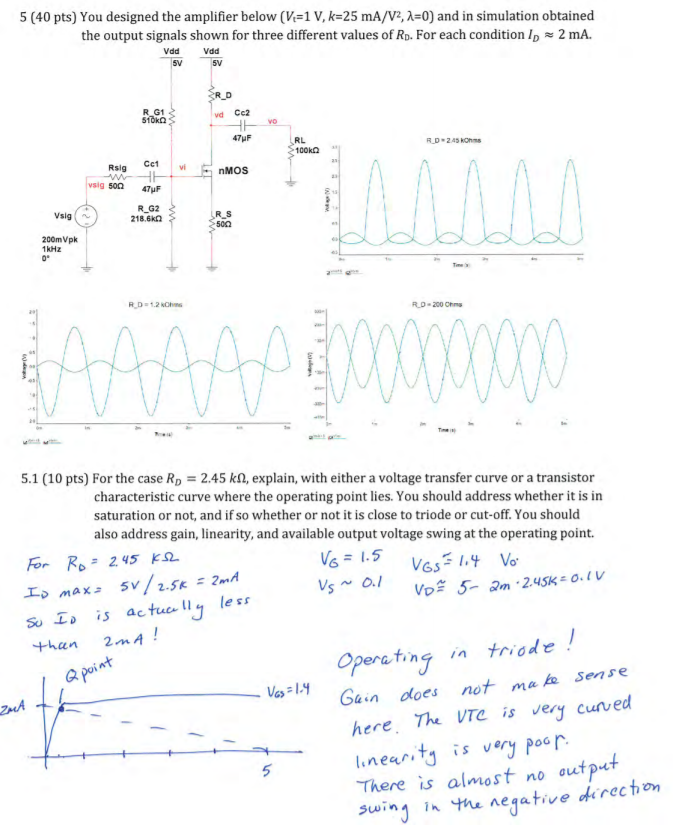 5 (40 pts) You designed the amplifier below (Vₜ=1 V, k=25 mA/V², λ=0) and in simulation obtained
the output signals shown for three different values of R_D. For each condition I_D ≈ 2 mA.
Vdd Vdd
5V 5V
R_D
R_G1
510kΩ
vd Cc2
vo
47µF
RL
100kΩ
Rsig Cc1 vi
nMOS
vsig 50Ω 47µF
R_G2
218.6kΩ
R_S
50Ω
Vsig
200mVpk
1kHz
0°
R_D = 2.45 kOhms
Voltage (V)
Time (s)
R_D = 1.2 kOhms
Voltage (V)
Time (s)
R_D = 200 Ohms
Time (s)
5.1 (10 pts) For the case R_D = 2.45 kΩ, explain, with either a voltage transfer curve or a transistor
characteristic curve where the operating point lies. You should address whether it is in
saturation or not, and if so whether or not it is close to triode or cut-off. You should
also address gain, linearity, and available output voltage swing at the operating point.
For R_D = 2.45 KΩ
I_D max = 5V/2.5K = 2mA
So I_D is actually less
than 2mA!
V_G = 1.5 V_GS ≅ 1.4 Vo
V_S ~ 0.1 V_D ≅ 5 - 2m·2.45K = 0.1V
Q point
2mA
V_GS = 1.4
5
Operating in triode!
Gain does not make sense
here. The VTC is very curved
linearity is very poor.
There is almost no output
swing in the negative direction